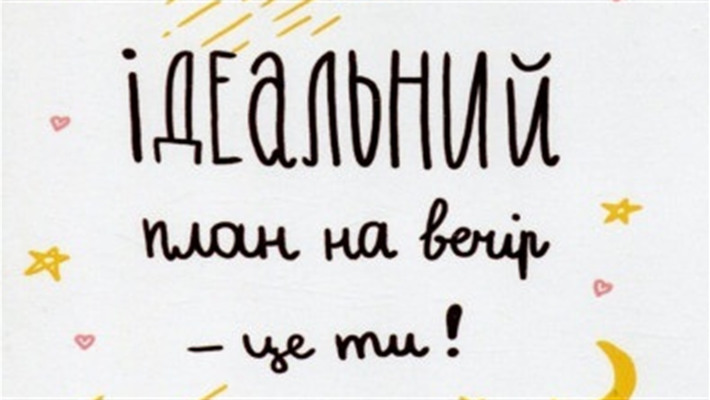 ідеальний
план на вечір
– це ти!